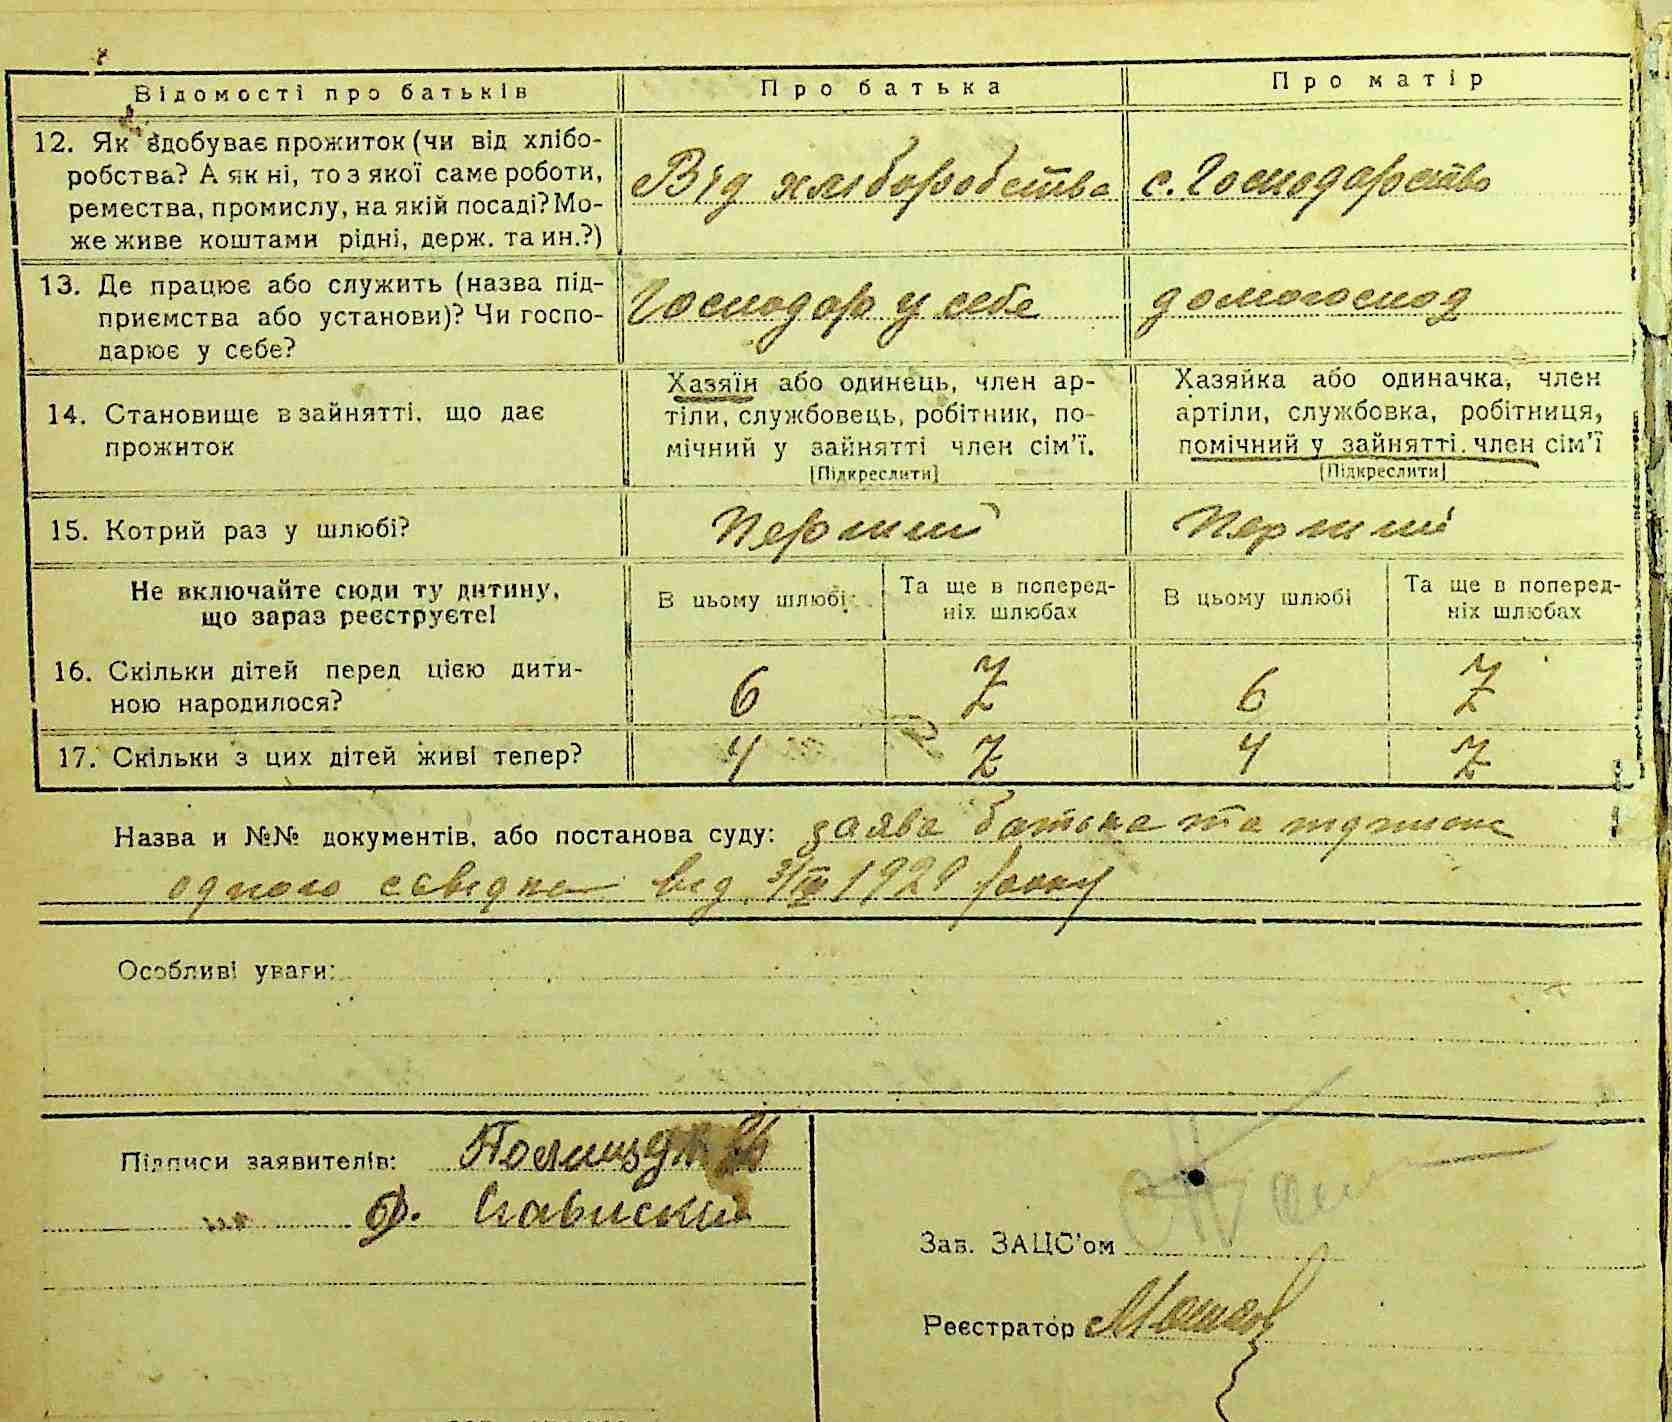 Відомості про батьків
Про батька
Про матір
12. Як здобуває прожиток (чи від хлібо-
робства? А як ні, то з якої саме роботи,
ремества, промислу, на якій посаді? Мо-
же живе коштами рідні, держ. та ин.?)
Від хліборобства
с. Господарство
13. Де працює або служить (назва під-
приємства або установи)? Чи госпо-
дарює у себе?
Господар у себе
домогоспод
14. Становище в зайнятті, що дає
прожиток
Хазяїн або одинець, член ар-
тіли, службовець, робітник, по-
мічний у зайнятті член сім'ї.
[Підкреслити]
Хазяйка або одиначка, член
артіли, службовка, робітниця,
помічний у зайнятті член сім'ї
[Підкреслити]
15. Котрий раз у шлюбі?
Перший
Перший
Не включайте сюди ту дитину,
що зараз реєструєте!
В цьому шлюбі
Та ще в поперед-
ніх шлюбах
В цьому шлюбі
Та ще в поперед-
ніх шлюбах
16. Скільки дітей перед цією дити-
ною народилося?
6
6
17. Скільки з цих дітей живі тепер?
4
4
Назва и №№ документів, або постанова суду: заява батька та
одного свідка від 3/III 1929 року
Особливі уваги:
Підписи заявителів: Полищук
Ф.
Зав. ЗАЦС'ом
Реєстратор